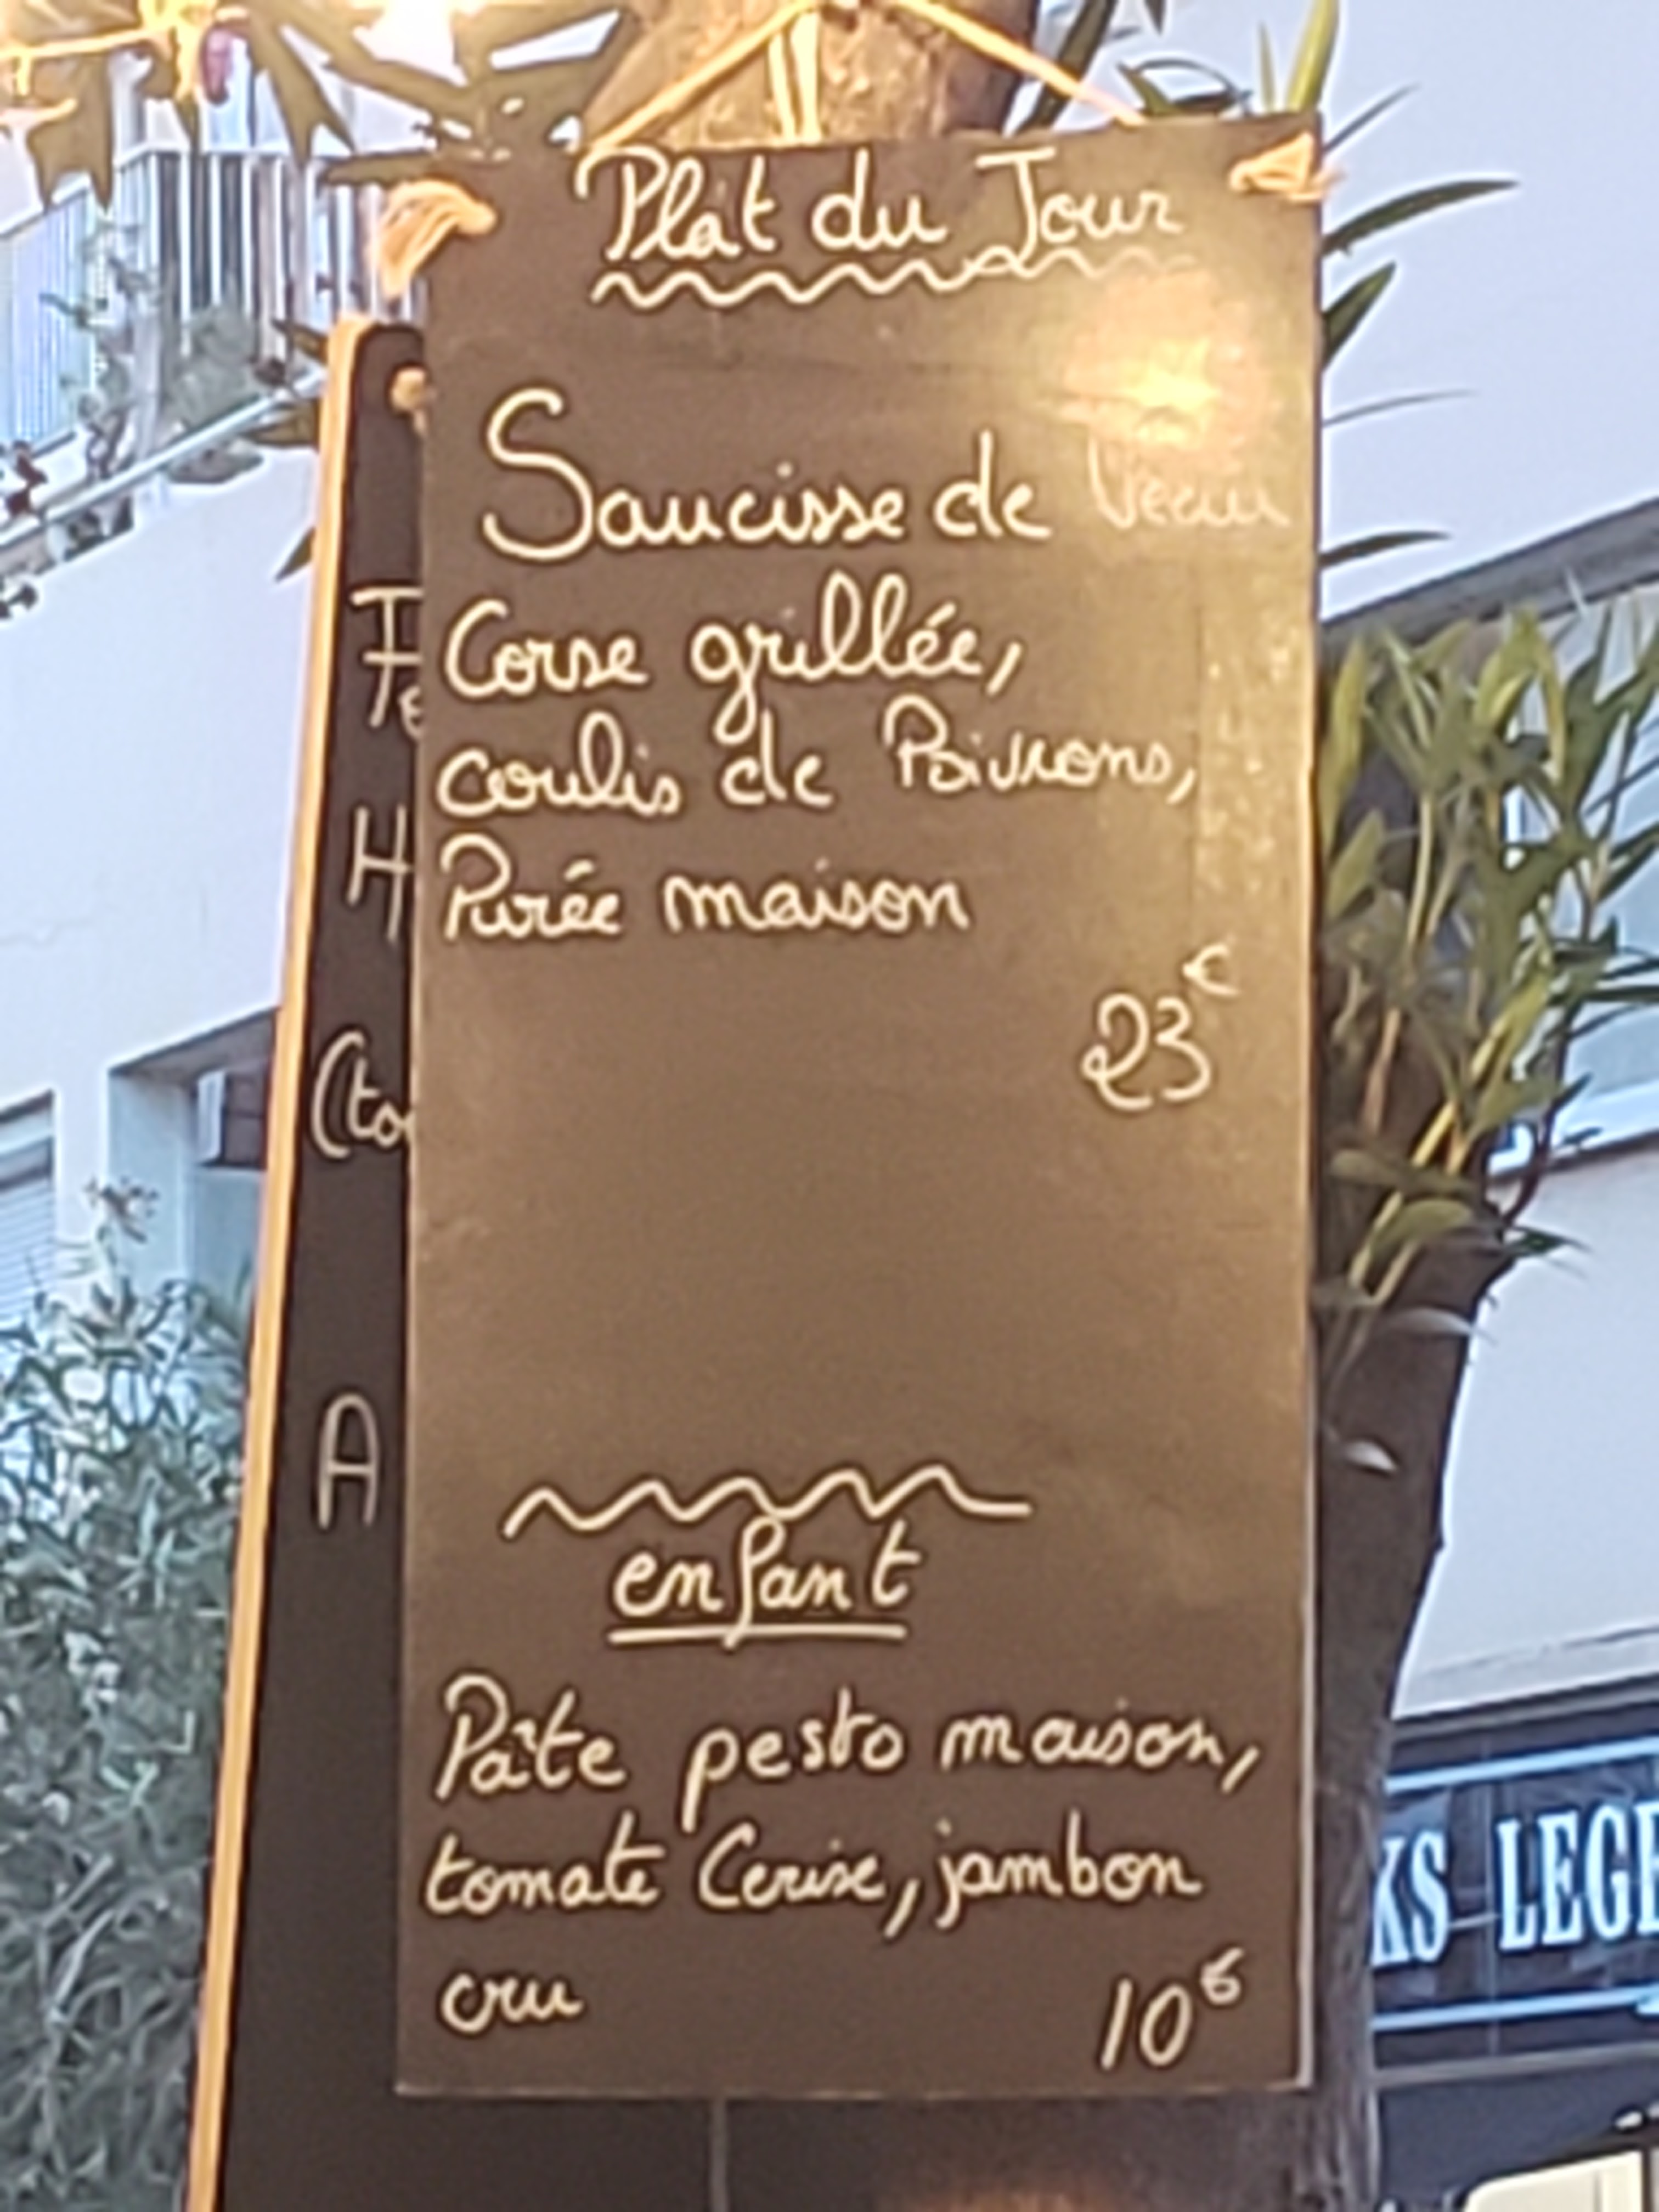 Plat du Jour
Saucisse de Veau
Corse grillée,
coulis de Poivrons,
Purée maison
23€
enfant
Pâte pesto maison,
tomate Cerise, jambon
cru
10€
H
(to
A
KS LEGE